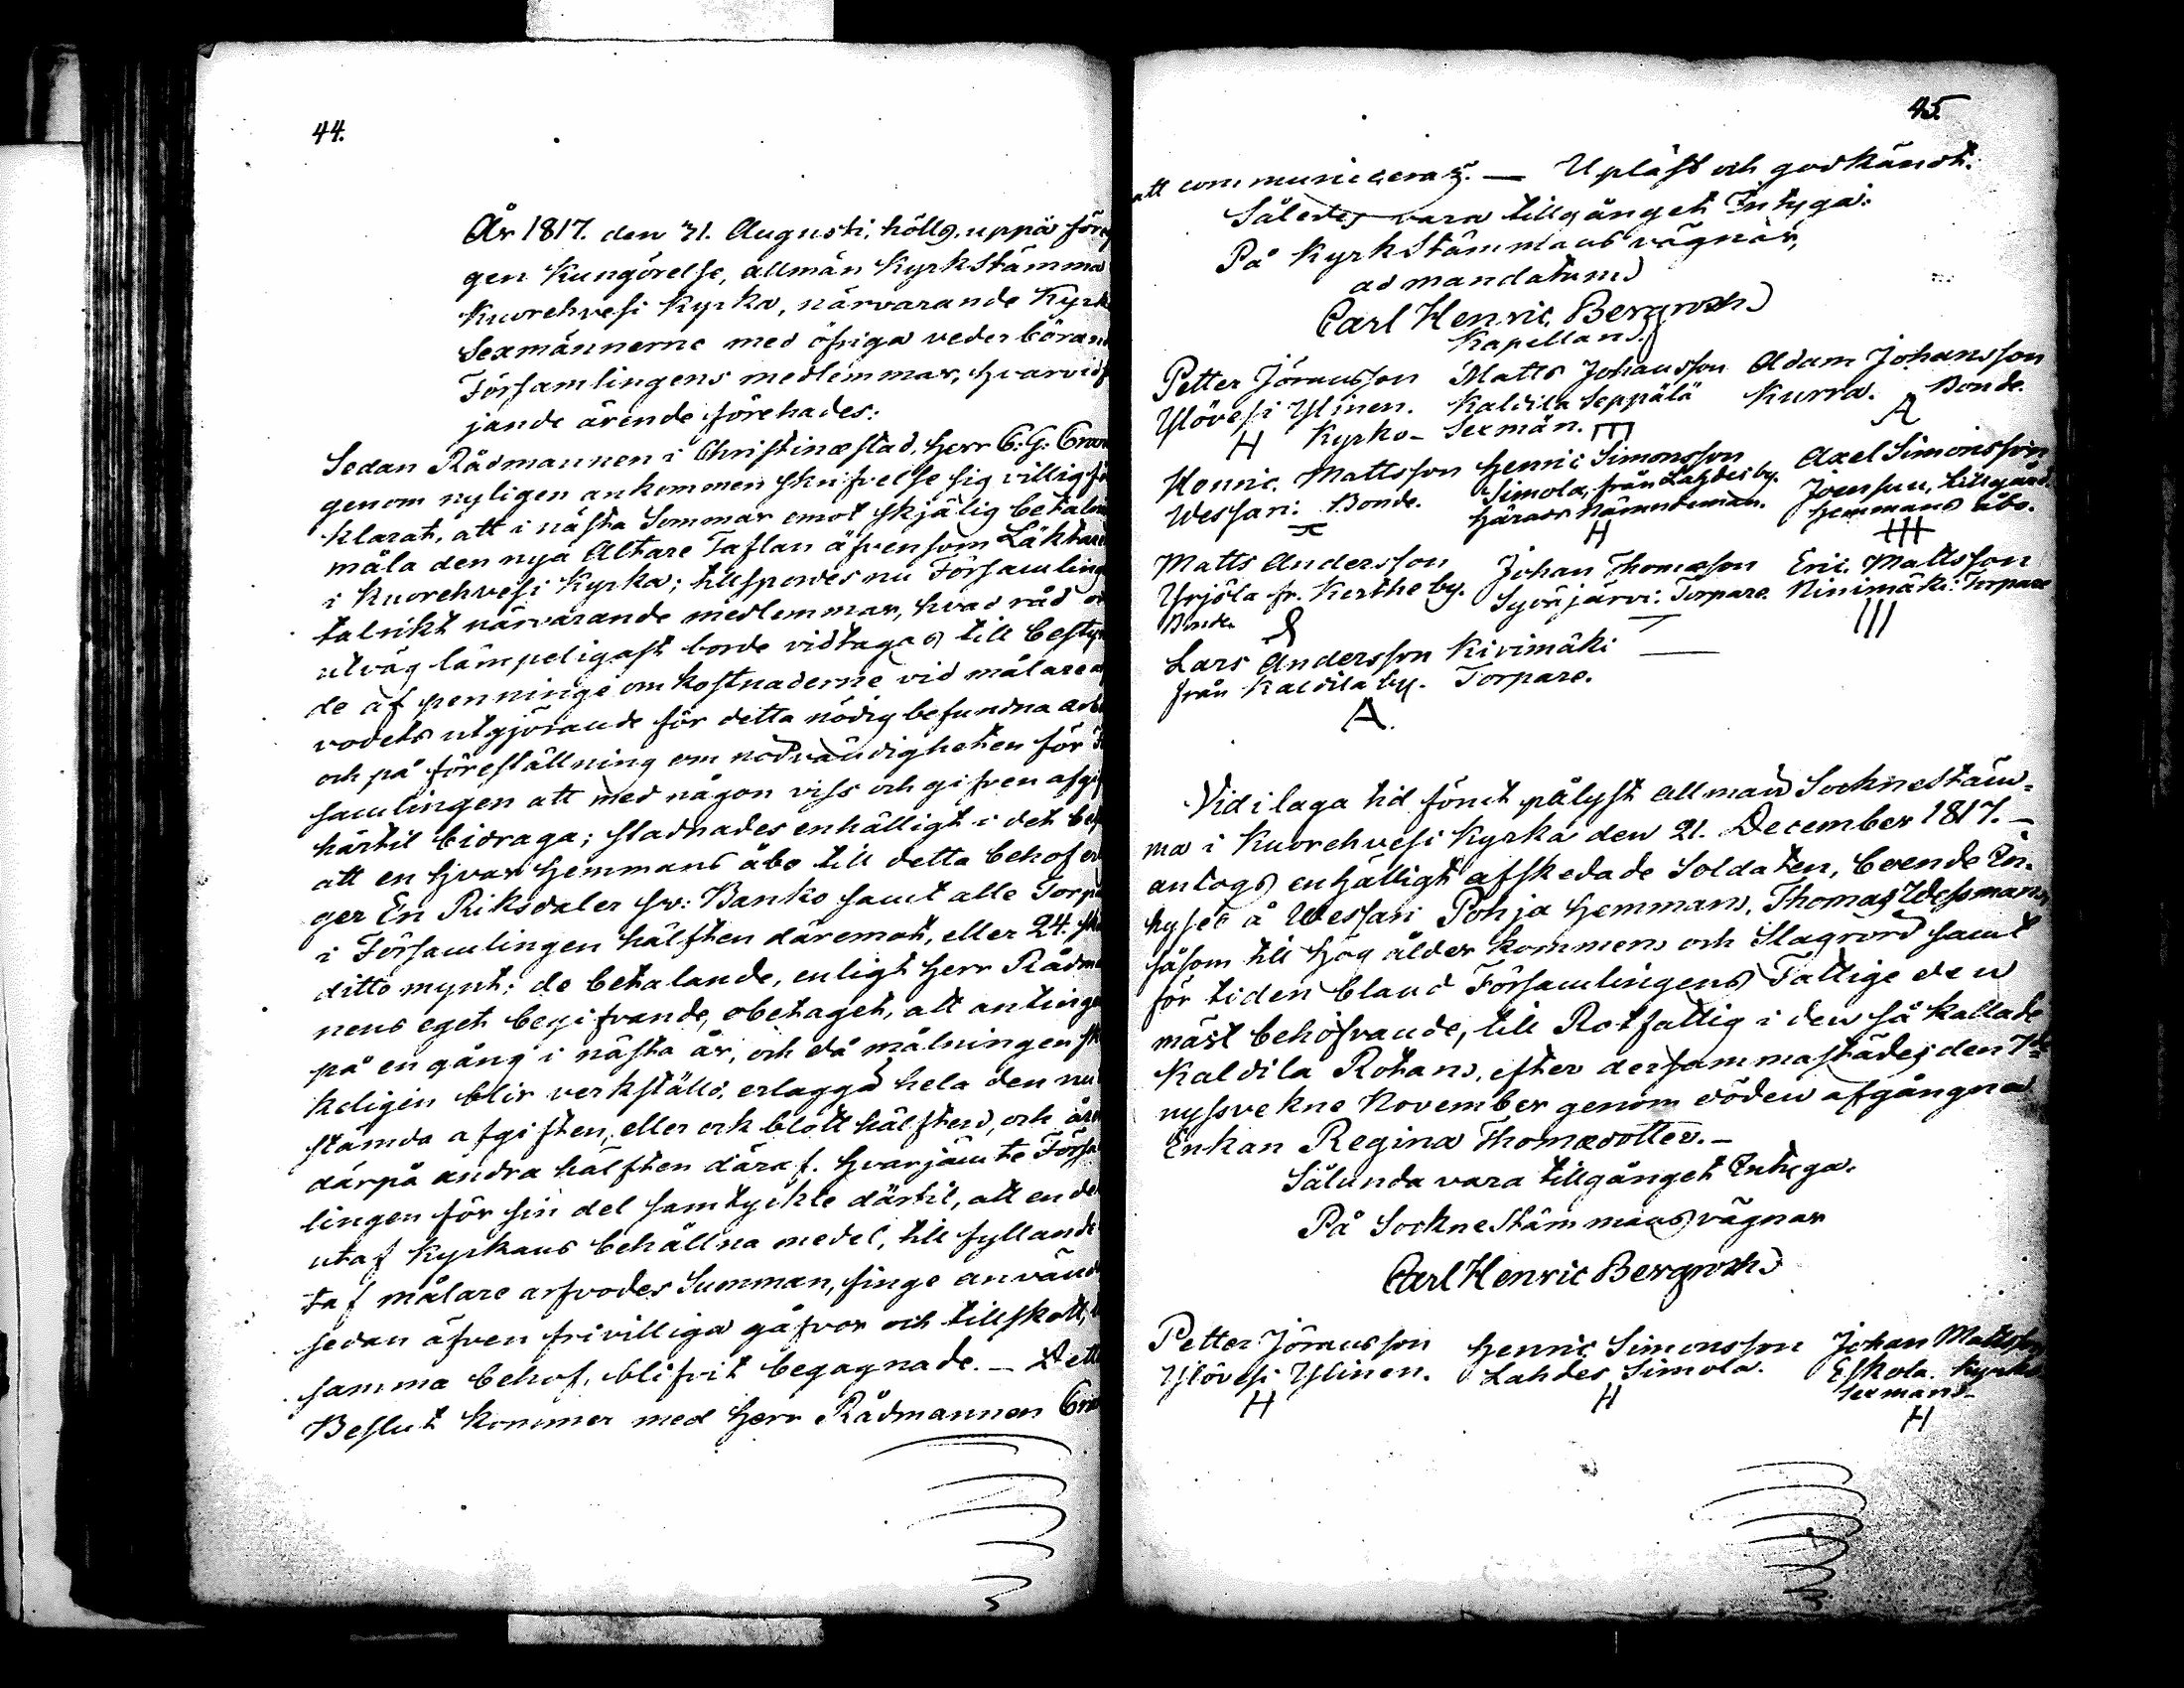 44.
År 1817. den 31. Augusti, hölls, uppå före
gen Kungörelse, allmän KyrkStämma
Kuorehvesi Kyrka, närvarande Kyrk
Sexmännerne med öfriga vederböran
Församlingens medlemmar, hvarvid f
jande ärende förehades:
Sedan Rådmannen i Christinæstad, Herr C: G: Gran
genom nyligen ankommen skrifvelse sig villig för
klarat, att i nästa Sommar emot skjälig betaln
måla den nya Altare Taflan äfvensom Läktare
i Kuorehvesi Kyrka; tillspordes nu Församling
talrikt närvarande medlemmar, hvad råd o
utväg lämpeligast borde vidtagas till bestri
de af penninge omkostnaderne vid målare a
vodets utgjörande för detta nödig befundna arbe
och på föreställning om nödvändigheten för F
samlingen att med någon viss och gifven afgif
härtil bidraga; stadnades enhälligt i det bes
att en hvar Hemmans åbo till detta behof er
ger En Riksdaler sv: Banko samt alle Torpa
i Församlingen hälften däremot, eller 24. sk
ditto mynt; de betalande, enligt Herr Rådma
nens eget begifvande, obetaget, att antinge
på en gång i nästa år, och då målningen sk
keligen blir verkställd, erlägga hela den nu
stämda afgiften, eller ock blott hälften, och åre
därpå andra hälften däraf. Hvarjämte Försa
lingen för sin del samtyckte därtil, att en del
utaf Kyrkans behållna medel, till fyllande
taf målare arfvodes Summan, finge använd
sedan äfven frivilliga gåfvor och tillskott,
samma behof, blifvit begagnade. — Dett
Beslut kommer med Herr Rådmannen Gra
45.
att communiceras. — Upläst och godkändt.
Således vara tillgånget Intyga:
På KyrkStämmans vägnar,
ad mandatum
Carl Henric Bergroth
Kapellan.
Petter Jöransson Matts Johansson Adam Johansson
Ylövesi Ylinen. Kaldila Seppälä Kurra. Bonde.
H Kyrko-Sexmän. A
Henric Mattsson Henric Simonsson Axel Simonsson
Wessari: Bonde. Simola, från Lahdes by. Joensuu, Lillgård
Härads Nämndeman. Hemmans åbo.
H
Matts Andersson Johan Thomasson Eric Mattsson
Yrjölä fr. Kerthe by. Syväjärvi: Torpare. Ninimäki: Torpare
Bonde III
Lars Andersson Kivimäki
från Kaldila by. Torpare.
A.
Vid i laga tid förut pålyst allmän SockneStäm-
ma i Kuorehvesi Kyrka den 21. December 1817. —
antogs enhälligt afskedade Soldaten, boende In-
hyses å Wessari Pohja Hemman, Thomas Wessman,
såsom till hög ålder kommen och Slagrörd samt
för tiden bland Församlingens Fattige den
mäst behöfvande, till Rotfattig i den så kallade
Kaldila Rotan, efter dersammastädes den 7de
nyssvekne November genom döden afgångna
Enkan Regina Thomædotter. —
Sålunda vara tillgånget Intyga.
På SockneStämmans vägnar
Carl Henric Bergroth
Petter Jöransson Henric Simonsson Johan Mattsson
Ylövesi Ylinen. Lahdes Simola. Eskola. Kyrko
Sexman.
H H H